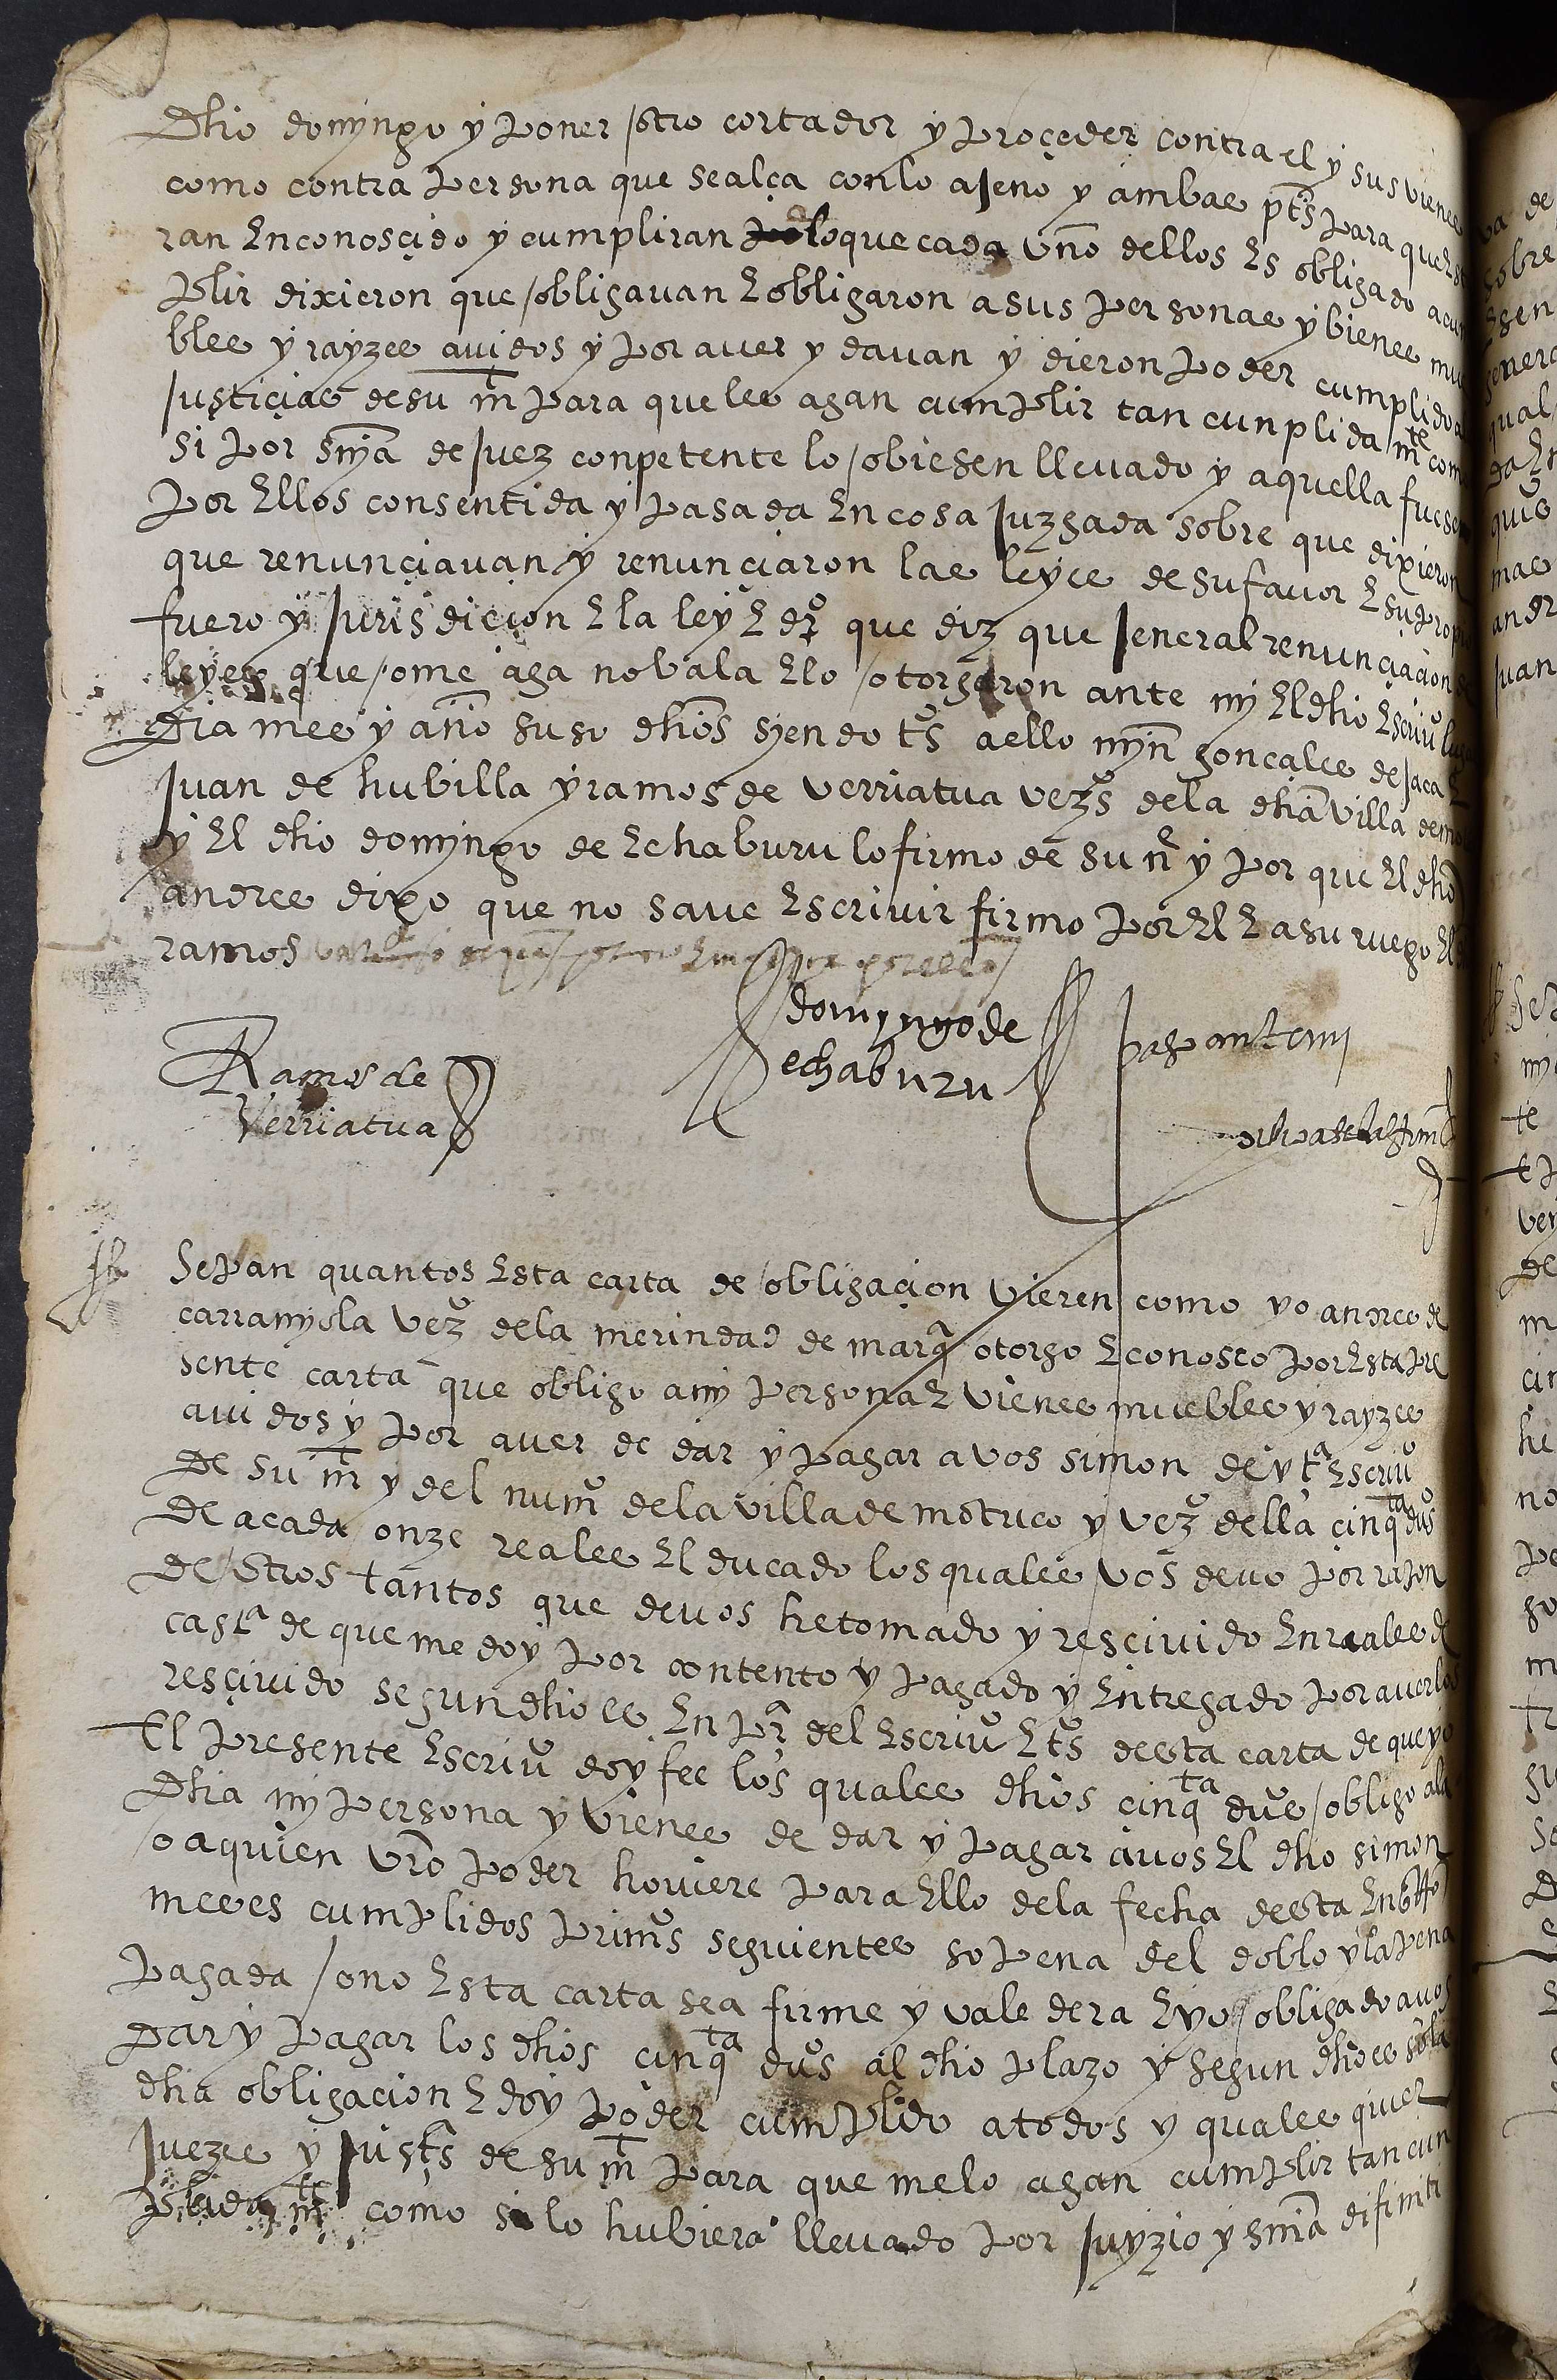 dho domyngo y poner otro cortador y proçeder contra el y sus vienes
como contra persona que se alça con lo ajeno y ambas ptes para que est
ran en conosçido y cumpliran lo que cada vno dellos es obligado a cun
plir dixieron que obligavan e obligaron a sus personas y bienes mue
bles y rayzes avidos y por aver y davan y dieron poder cumplido a
justiçias de su mt para que les agan cumplir tan cunplida mte com
si por snya de juez conpetente lo obiesen llevado y aquella fuese
por ellos consentida y pasada en cosa juzgada sobre que dixieron
que renunçiavan y renunçiaron las leyes de su favor e su propio
fuero y jurisdiçion e la ley e dro que diz que jeneral renunçiaçion de
leyes que ome aga no vala e lo otorgaron ante my el dho escriuo
dia mes y año suso dhos syendo tos a ello myn gonçales de jaca e
juan de hubilla y ramos de verriatua vezos de la dha villa de mo
y el dho domyngo de echaburu lo firmo de su ne y por que el dho
andres dixo que no save escrivir firmo por el e a su ruego el
ramos
Ramos de
Verriatua
domyngo de
echaburu
paso ante mi
Sepan quantos esta carta de obligaçion vieren como yo andres de
carramyola vezo de la merindad de marqa otorgo e conosco por esta pre
sente carta que obligo a my persona e vienes muebles y rayzes
avidos y por aver de dar y pagar a vos simon de yta escriuo
de su mt y del numo de la villa de motrico y vezo della cinqta dus
de a cada onze reales el ducado los quales vos devo por razon
de otros tantos que de vos he tomado y resçivido en reales de
casta de que me doy por contento y pagado y entregado por averlos
resçivido segun dho es en pra del escriuo e tos desta carta de que yo
el presente escriuo doy fee los quales dhos cinqta dus obligo a la
dha my persona y vienes de dar y pagar a vos el dho simon
o a quien vro poder hoviere para ello de la fecha desta en
meses cumplidos primos seguientes so pena del doblo y la pena
pagada o no esta carta sea firme y valedera e yo obligado a vos
dar y pagar los dhos cinqta dus al dho plazo y segun dho es so la
dha obligacion e doy poder cumplido a todos y quales quier
juezes y justas de su mt para que me lo agan cumplir tan cun
plida mte como si lo hubiera llevado por juyzio y snia difiniti